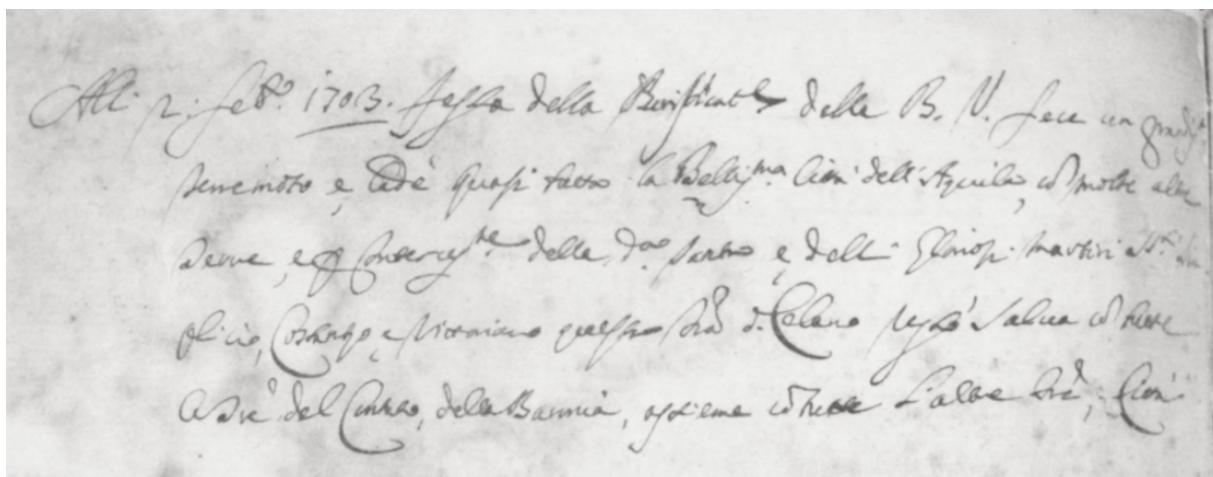 Alli 2: feb.º 1703. festa della Purificat.e della B. V. fece un
terremoto, e cadè quasi tutta la Belliss.ma Città dell'Aquila, cõ molte altre
Terre, e della d.a Santa, e delli Gloriosi Martiri SS.ti
plicio, Costanzo, e Vittoriano questa Trã di Celano restò salva cõ tutte
le Tre del Contado, della Baronia, assieme cõ tutte l'altre Tre, Città